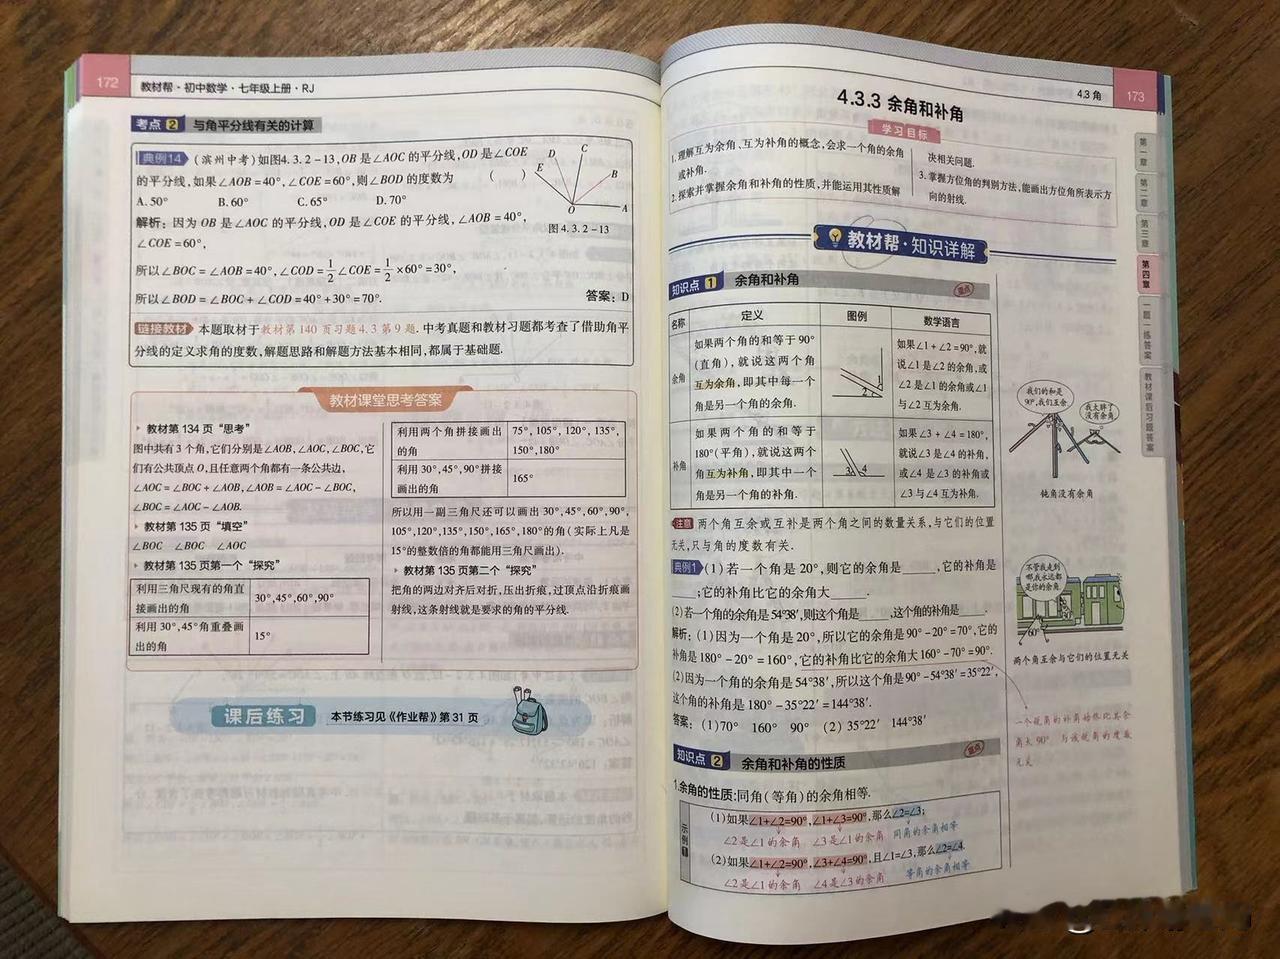 172
教材帮·初中数学·七年级上册·RJ
考点2 与角平分线有关的计算
典例14 (滨州中考)如图4.3.2-13,OB是∠AOC的平分线,OD是∠COE
的平分线,如果∠AOB=40°,∠COE=60°,则∠BOD的度数为 ( )
A.50° B.60° C.65° D.70°
E D C B O A
图4.3.2-13
解析:因为OB是∠AOC的平分线,OD是∠COE的平分线,∠AOB=40°,
∠COE=60°,
所以∠BOC=∠AOB=40°,∠COD=1/2∠COE=1/2×60°=30°,
所以∠BOD=∠BOC+∠COD=40°+30°=70°. 答案:D
链接教材 本题取材于教材第140页习题4.3第9题.中考真题和教材习题都考查了借助角平
分线的定义求角的度数,解题思路和解题方法基本相同,都属于基础题.
教材课堂思考答案
教材第134页“思考”
图中共有3个角,它们分别是∠AOB,∠AOC,∠BOC,它
们有公共顶点O,且任意两个角都有一条公共边,
∠AOC=∠BOC+∠AOB,∠AOB=∠AOC-∠BOC,
∠BOC=∠AOC-∠AOB.
教材第135页“填空”
∠BOC ∠BOC ∠AOC
教材第135页第一个“探究”
利用三角尺现有的角直
接画出的角
30°,45°,60°,90°
利用30°,45°角重叠画
出的角
15°
利用两个角拼接画出
的角
75°,105°,120°,135°,
150°,180°
利用30°,45°,90°拼接
画出的角
165°
所以用一副三角尺还可以画出30°,45°,60°,90°,
105°,120°,135°,150°,165°,180°的角(实际上凡是
15°的整数倍的角都能用三角尺画出).
教材第135页第二个“探究”
把角的两边对齐后对折,压出折痕,过顶点沿折痕画
射线,这条射线就是要求的角的平分线.
课后练习 本节练习见《作业帮》第31页
4.3 角 173
4.3.3 余角和补角
学习目标
1.理解互为余角、互为补角的概念,会求一个角的余角
或补角.
2.探索并掌握余角和补角的性质,并能运用其性质解
决相关问题.
3.掌握方位角的判别方法,能画出方位角所表示方
向的射线.
教材帮·知识详解
知识点1 余角和补角 重点
名称 定义 图例 数学语言
余角
如果两个角的和等于90°
(直角),就说这两个角
互为余角,即其中每一个
角是另一个角的余角.
1
2
如果∠1+∠2=90°,就
说∠1是∠2的余角,或
∠2是∠1的余角或∠1
与∠2互为余角.
补角
如果两个角的和等于
180°(平角),就说这两个
角互为补角,即其中一个
角是另一个角的补角.
3 4
如果∠3+∠4=180°,
就说∠3是∠4的补角,
或∠4是∠3的补角或
∠3与∠4互为补角.
注意 两个角互余或互补是两个角之间的数量关系,与它们的位置
无关,只与角的度数有关.
典例1 (1)若一个角是20°,则它的余角是____,它的补角是
____;它的补角比它的余角大____.
(2)若一个角的余角是54°38′,则这个角是____,这个角的补角是____.
解析:(1)因为一个角是20°,所以它的余角是90°-20°=70°,它的
补角是180°-20°=160°,它的补角比它的余角大160°-70°=90°.
(2)因为一个角的余角是54°38′,所以这个角是90°-54°38′=35°22′,
这个角的补角是180°-35°22′=144°38′.
答案:(1)70° 160° 90° (2)35°22′ 144°38′
知识点2 余角和补角的性质 重点
1.余角的性质:同角(等角)的余角相等.
示例1
(1)如果∠1+∠2=90°,∠1+∠3=90°,那么∠2=∠3;
∠2是∠1的余角 ∠3是∠1的余角 同角的余角相等
(2)如果∠1+∠2=90°,∠3+∠4=90°,且∠1=∠3,那么∠2=∠4.
∠2是∠1的余角 ∠4是∠3的余角 等角的余角相等
我们的和是
90°,我们互余
我太胖了
没有余角
钝角没有余角
不管我走到
哪,我永远都
是你的余角.
30°
60°
两个角互余与它们的位置无关
一个锐角的补角始终比其余
角大90°,与该锐角的度数
无关
第一章
第二章
第三章
第四章
一题一练答案
教材课后习题答案